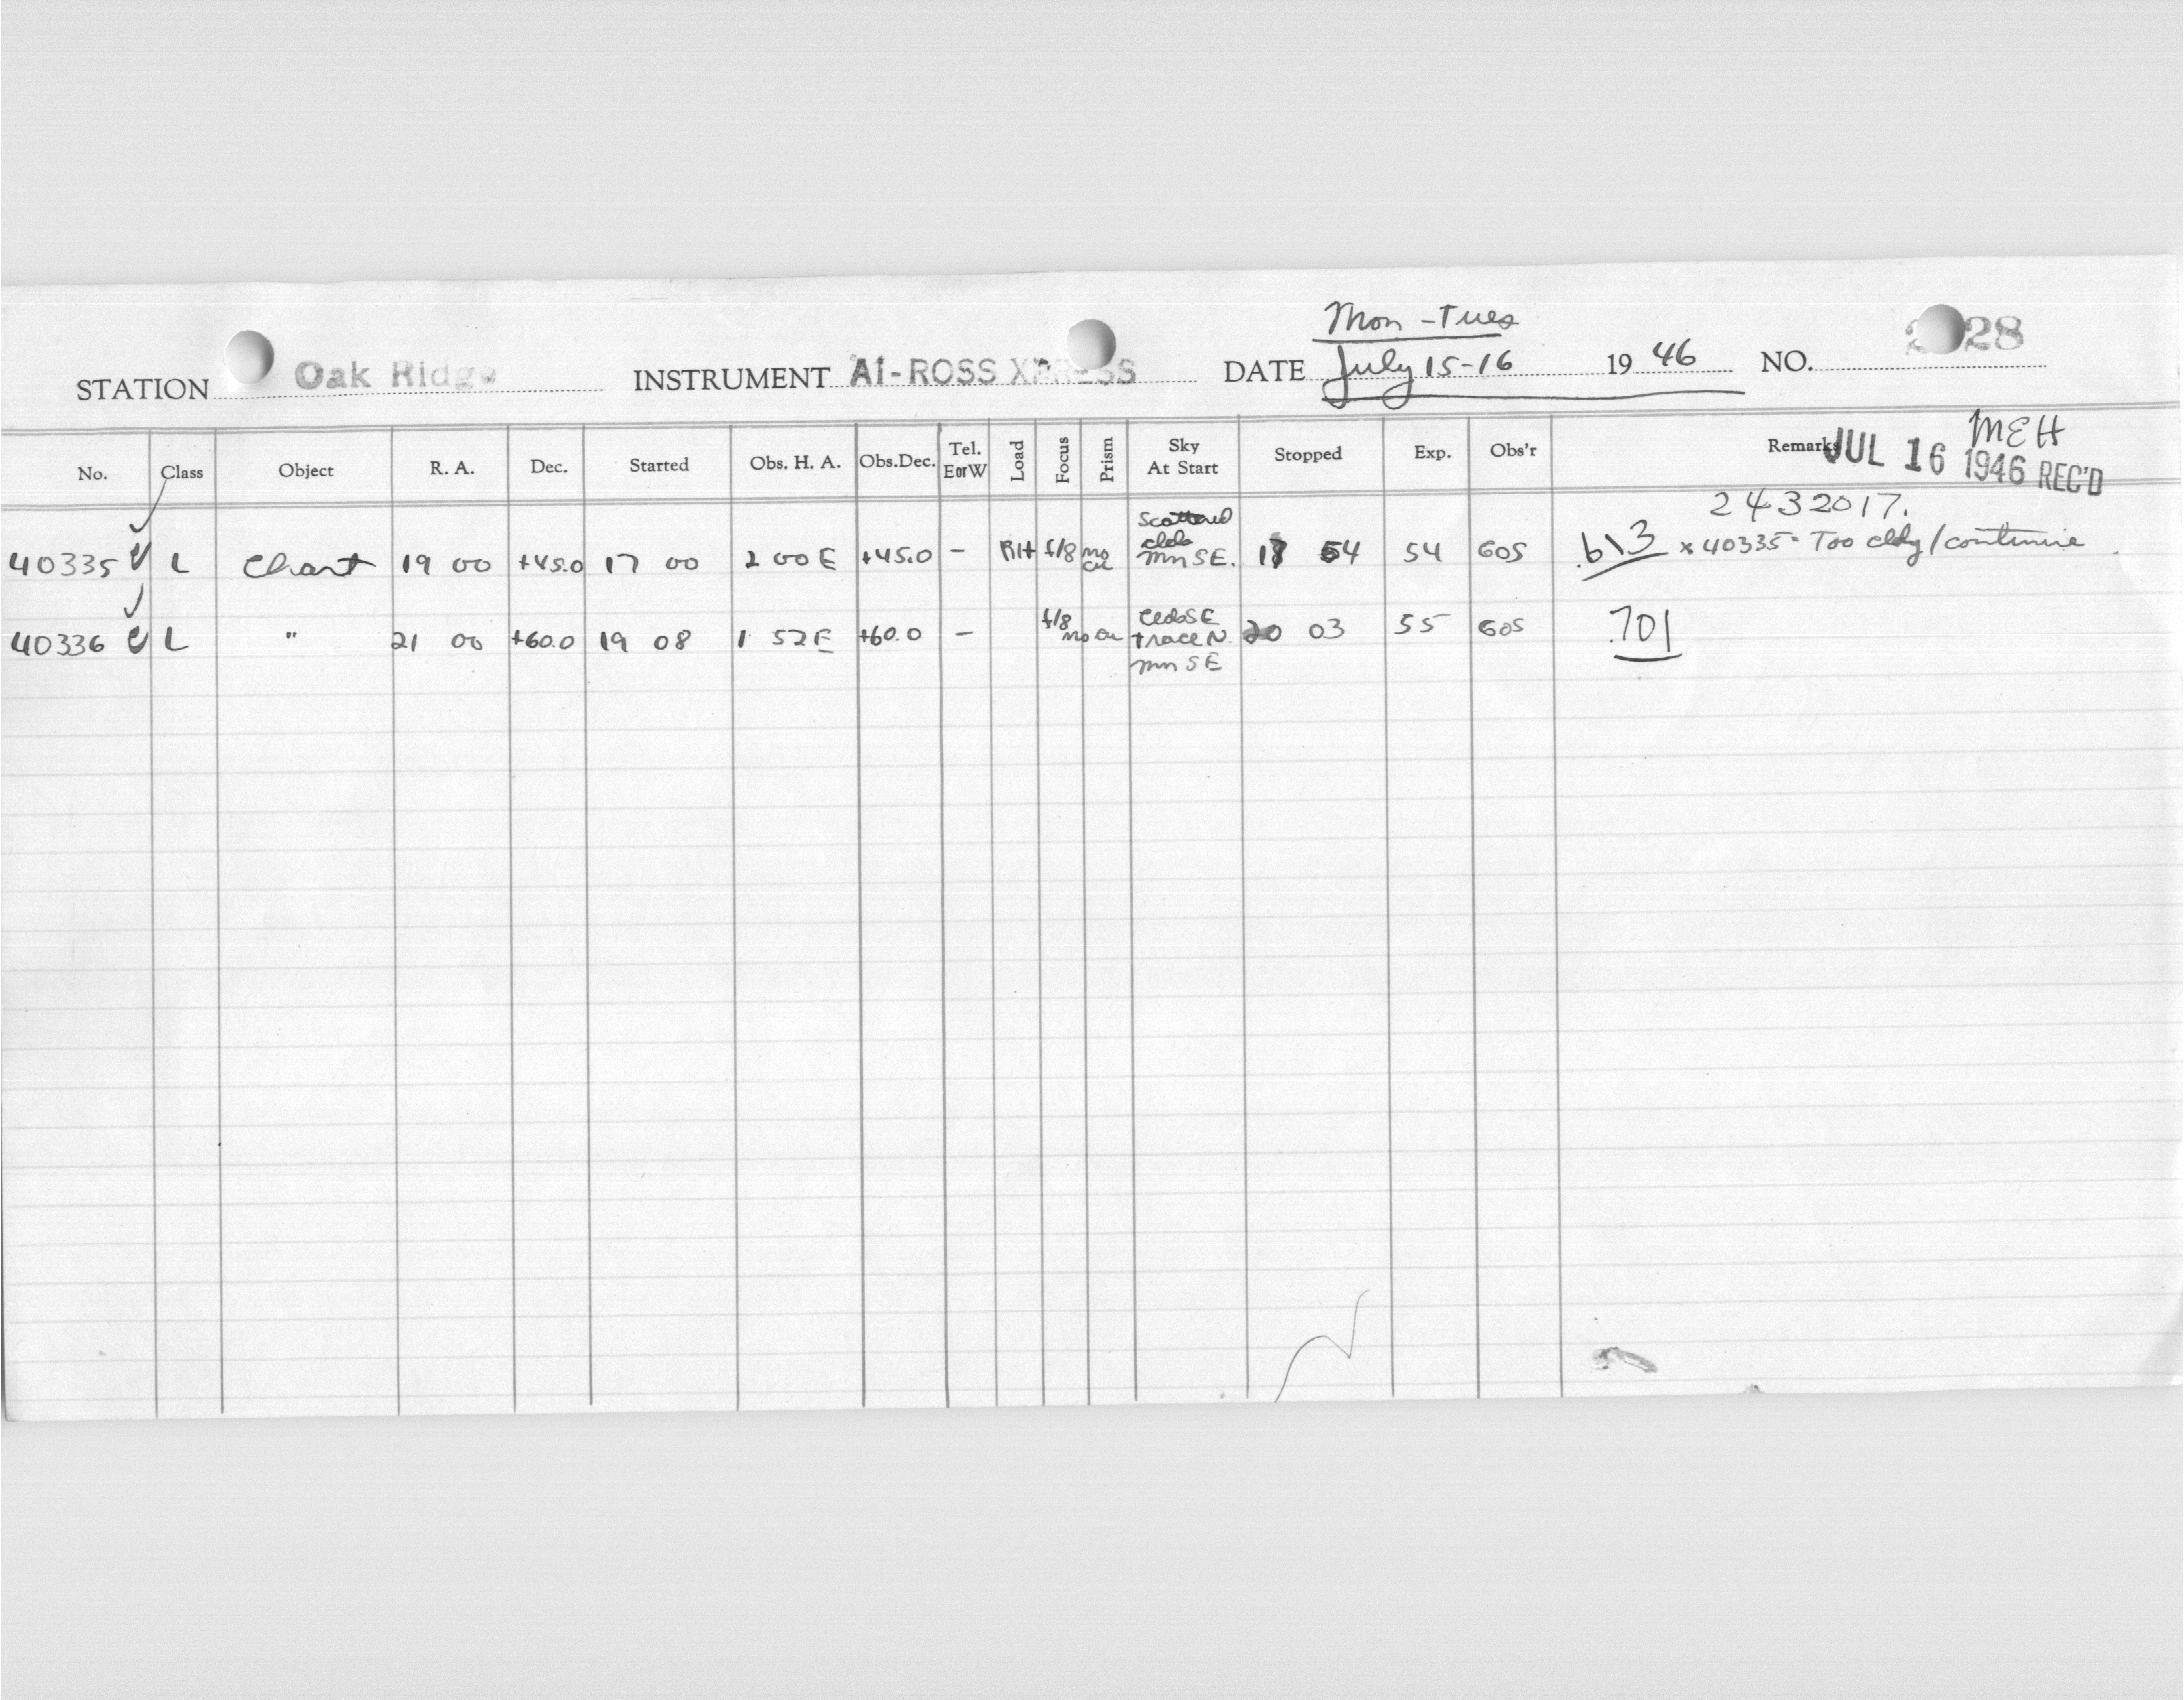 Mon - Tues
STATION Oak Ridge INSTRUMENT A1-ROSS XPRESS DATE July 15-16 1946 NO. 28
MEH
No. Class Object R. A. Dec. Started Obs. H. A. Obs.Dec. Tel. E or W Load Focus Prism Sky At Start Stopped Exp. Obs'r Remarks
JUL 16 1946 REC'D
2432017.
40335 L Chart 19 00 +45.0 17 00 2 00 E +45.0 - RH f/8 no cu Scattered clds mn SE. 54 54 GOS .613 x 40335- Too cldy / continue
40336 L " 21 00 +60.0 19 08 1 52 E +60.0 - f/8 no cu Clds SE trace N. mn SE 20 03 55 GOS .701